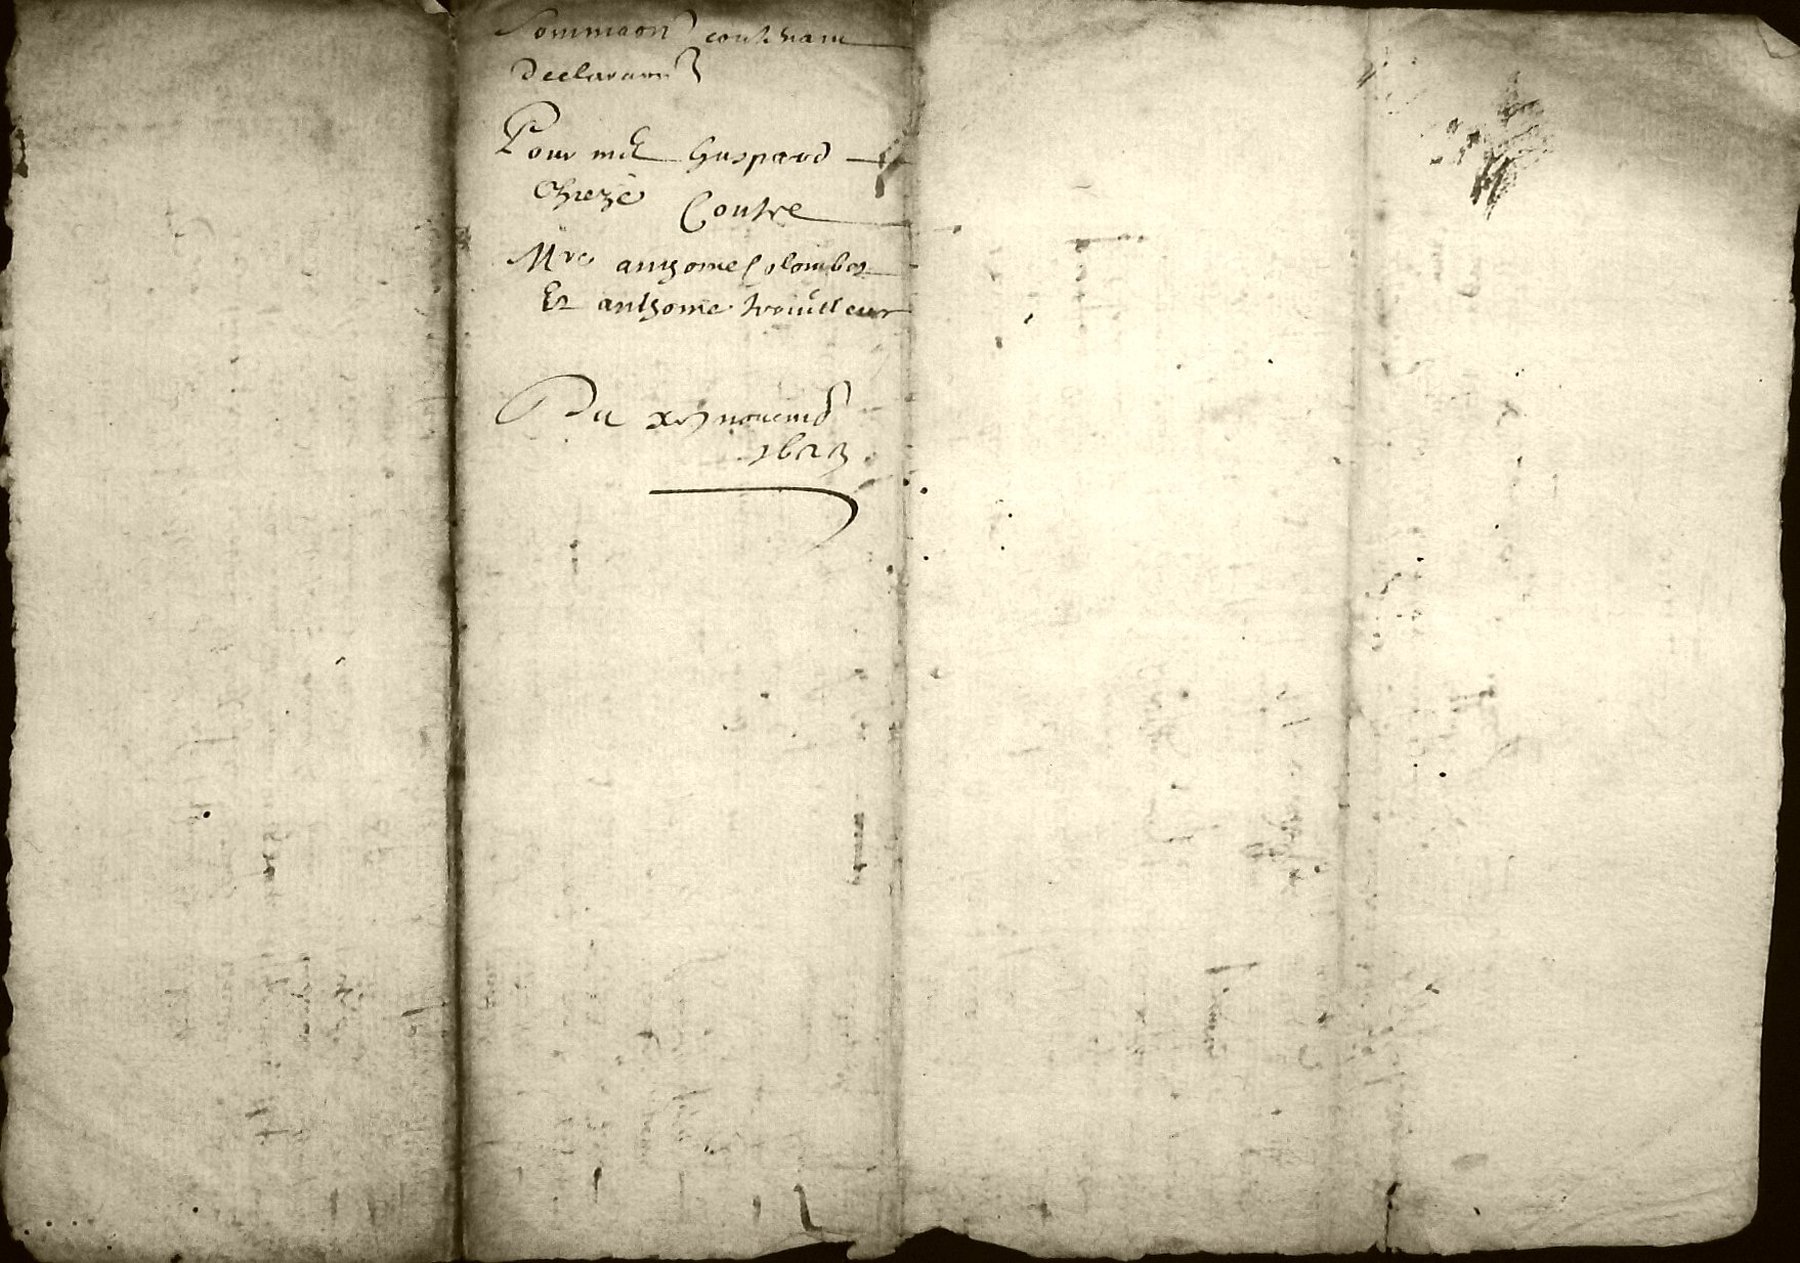 Sommaon contenant
declaraon
Pour me Gaspard
Chieze Contre
Mre anthoine Colombet
Et anthoine trouilleur
Du novemb
1623